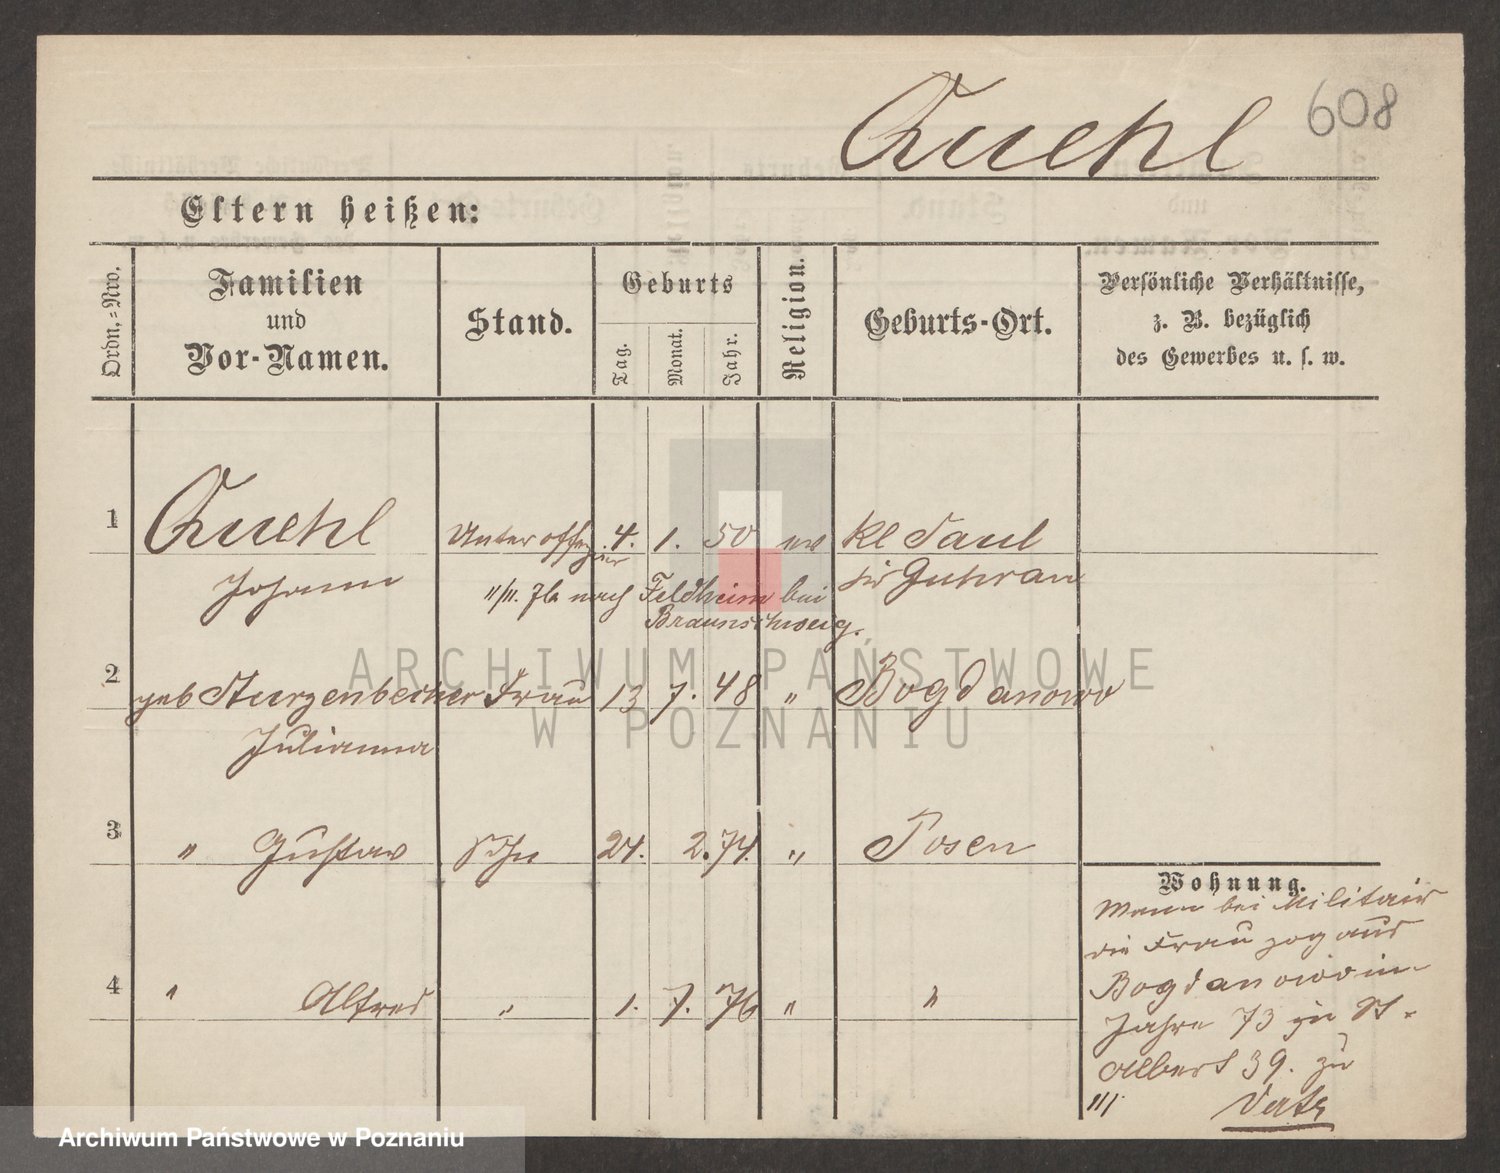 Quehl
608
Eltern heißen:
Ordn.-Nro.
Familien
und
Vor-Namen.
Stand.
Geburts
Tag.
Monat.
Jahr.
Religion.
Geburts-Ort.
Persönliche Verhältnisse,
z. B. bezüglich
des Gewerbes u. s. w.
1 Quehl Unteroffizier 4. 1. 50 ev Kl Saul
Johann Kr Guhrau
nach Feldheim bei
Braunschweig.
2 geb Sturzenbecher Frau 13 7. 48 " Bogdanowo
Julianna
3 " Gustav Sohn 24. 2. 74. " Posen
4 " Alfred " 1. 7. 76 " "
Wohnung.
Mann bei Militair
die Frau zog aus
Bogdanowo im
Jahre 73 zu St.
Albert 39. zu
ARCHIWUM PAŃSTWOWE
W POZNANIU
Archiwum Państwowe w Poznaniu